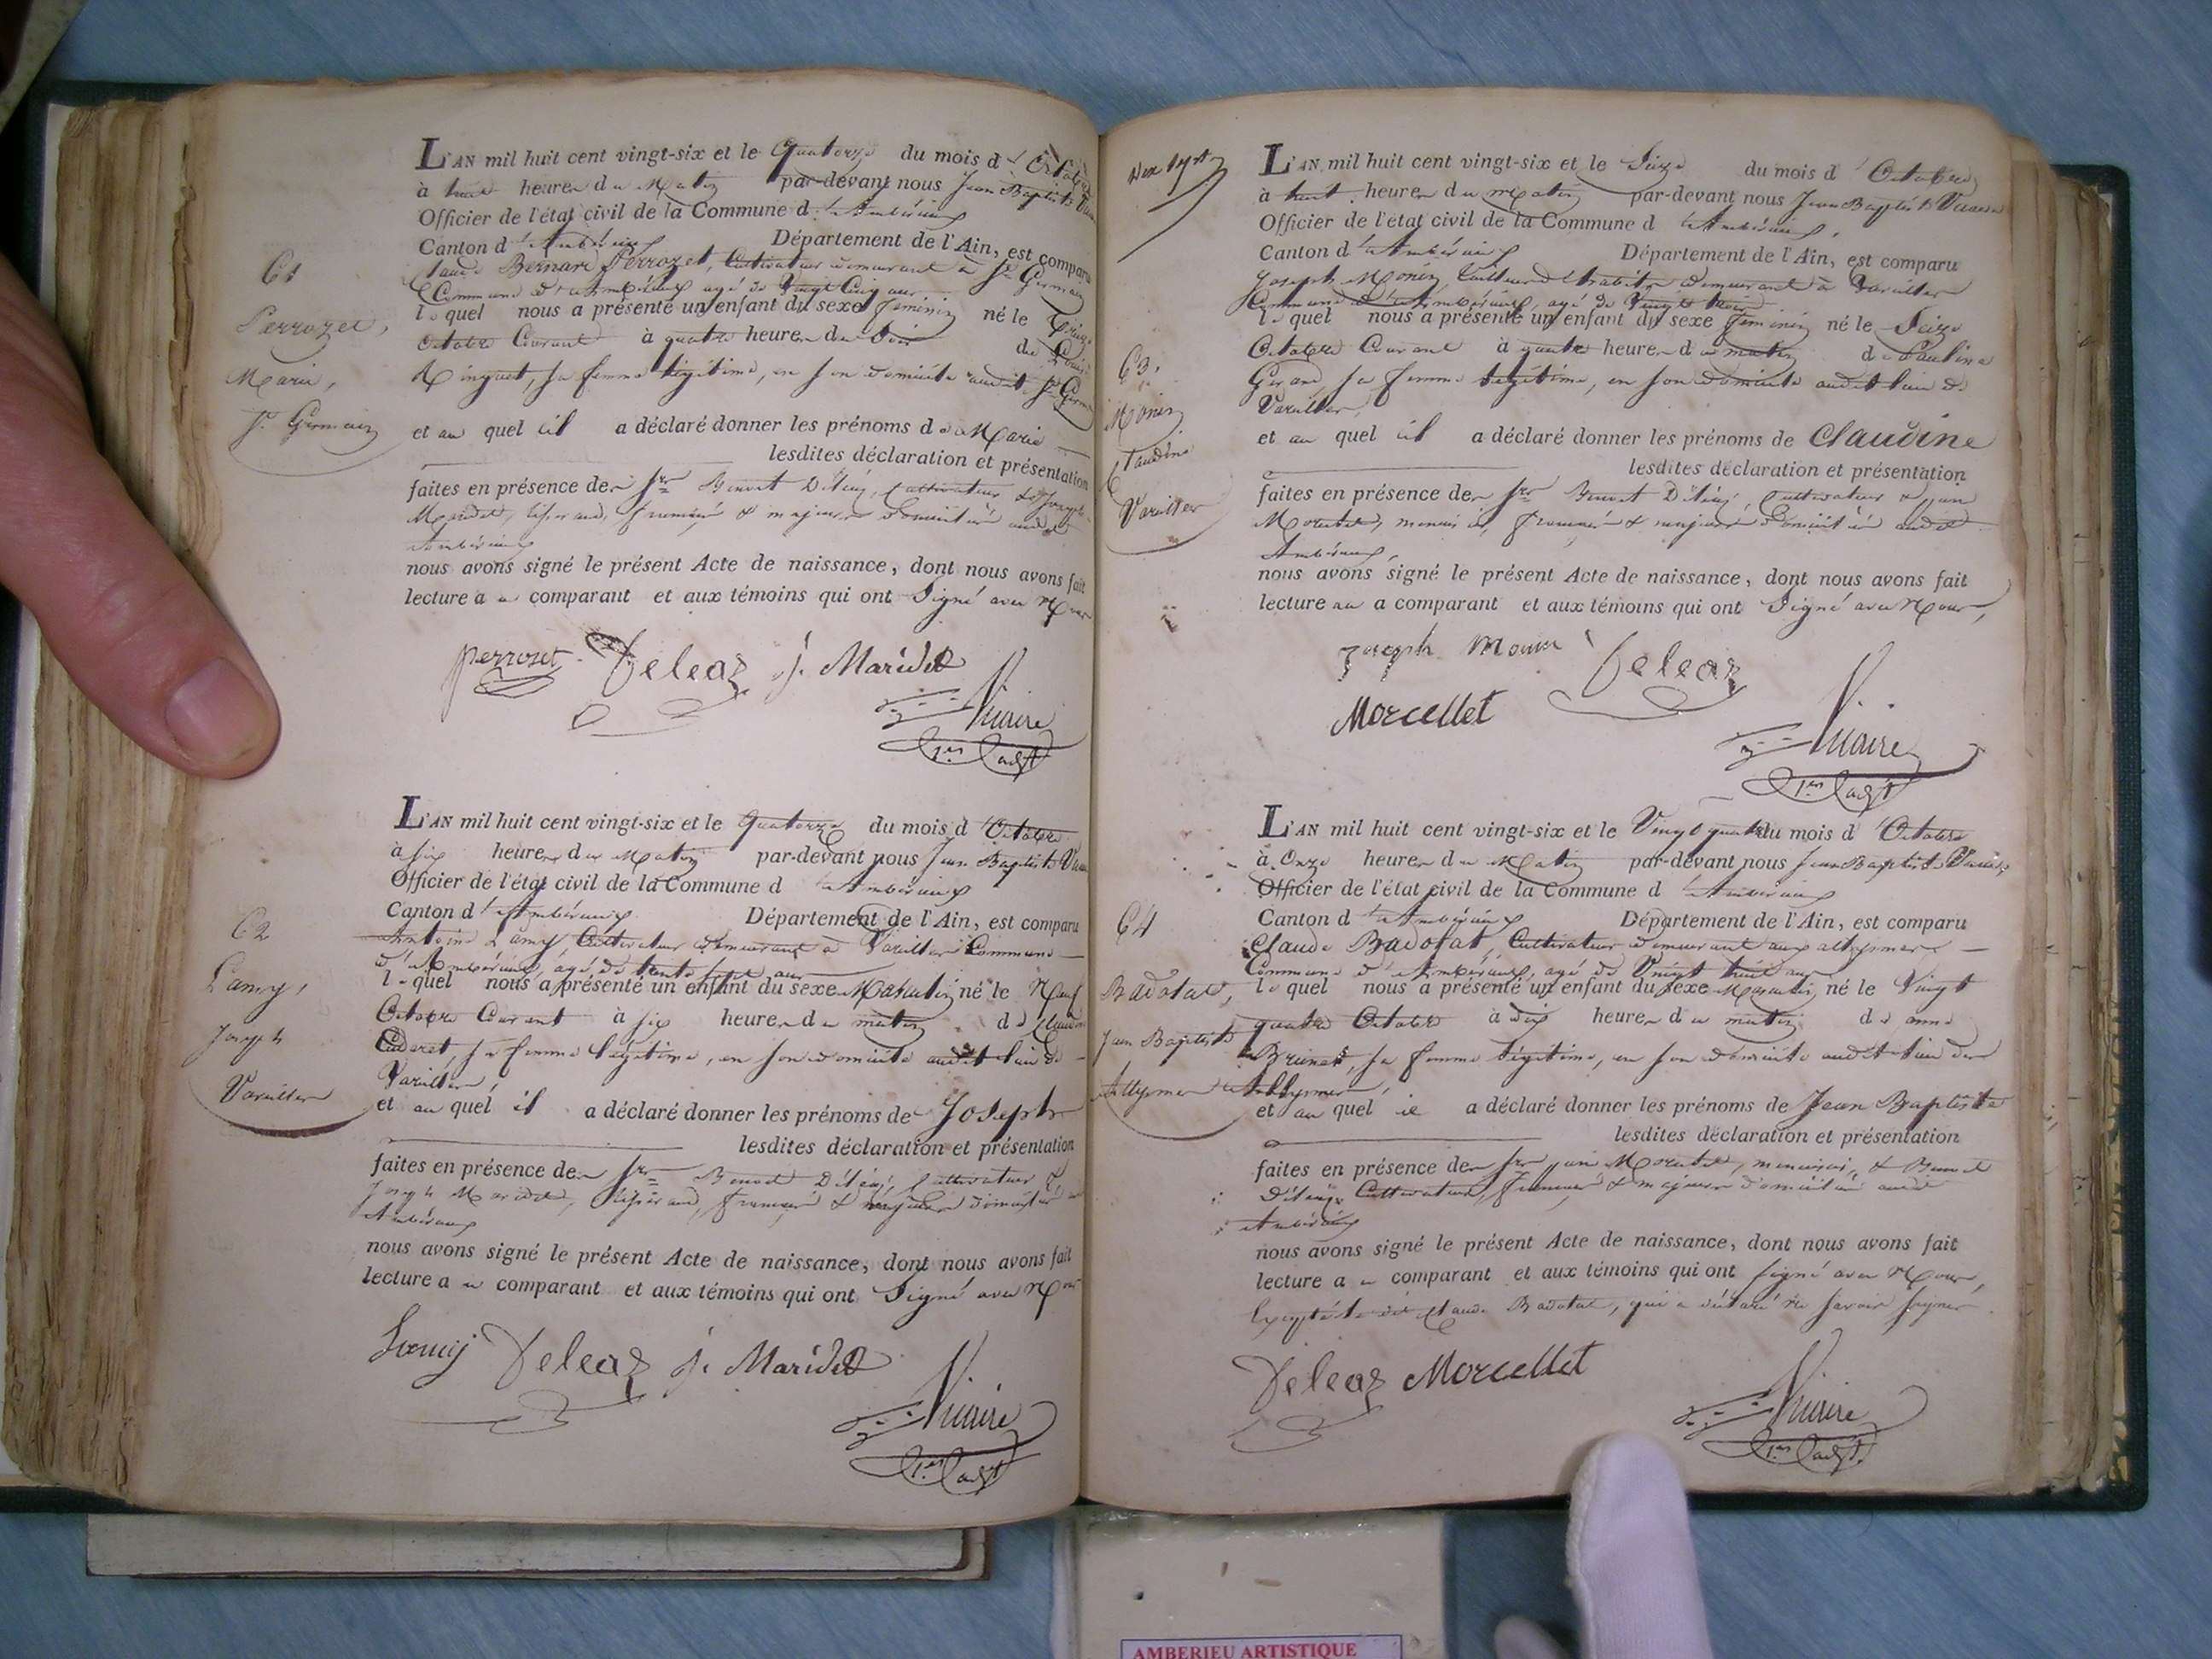 61
Perrozet,
Marie,
St. Germain
L'AN mil huit cent vingt-six et le Quatorze du mois d'Octobre
à heures du Matin par-devant nous Jean Baptiste
Officier de l'état civil de la Commune d'Ambérieux
Canton d'Ambérieux Département de l'Ain, est comparu
Claude Bernard Perrozet, Cultivateur demeurant à St. Germain
Commune d'Ambérieux agé de Vingt Cinq ans
lequel nous a présenté un enfant du sexe féminin né le
Octobre Courant à quatre heures du Soir de
sa femme légitime, en son domicile audit St.
et au quel il a déclaré donner les prénoms de Marie
lesdites déclaration et présentation
faites en présence des Srs Benoit Déléaz, Cultivateur & Joseph
Maridet, français & majeurs domiciliés audit
Ambérieux
nous avons signé le présent Acte de naissance, dont nous avons fait
lecture au comparant et aux témoins qui ont Signé avec Nous
perrozet Deleaz j. Maridet
Vicaire
1er adjt
62
Lamy,
Joseph
Vareilles
L'AN mil huit cent vingt-six et le quatorze du mois d'Octobre
à six heures du Matin par-devant nous Jean Baptiste
Officier de l'état civil de la Commune d'Ambérieux
Canton d'Ambérieux Département de l'Ain, est comparu
Antoine Lamy, Cultivateur demeurant à Vareilles Commune
d'Ambérieux, agé de trente sept ans
lequel nous a présenté un enfant du sexe Masculin né le Neuf
Octobre Courant à six heures du matin de
sa femme légitime, en son domicile audit lieu de
Vareilles
et au quel il a déclaré donner les prénoms de Joseph
lesdites déclaration et présentation
faites en présence des Srs Benoit Déléaz, Cultivateur &
Joseph Maridet, français & majeurs domiciliés
Ambérieux
nous avons signé le présent Acte de naissance, dont nous avons fait
lecture au comparant et aux témoins qui ont Signé avec Nous
Lamy Deleaz j. Maridet
Vicaire
1er adjt
63,
Monin
Claudine
Vareilles
L'AN mil huit cent vingt-six et le Seize du mois d'Octobre
à huit heures du Matin par-devant nous Jean Baptiste Vicaire
Officier de l'état civil de la Commune d'Ambérieux,
Canton d'Ambérieux Département de l'Ain, est comparu
Joseph Monin, tailleur d'habits demeurant à Vareilles
Commune d'Ambérieux, agé de Vingt trois
lequel nous a présenté un enfant du sexe féminin né le Seize
Octobre Courant à quatre heures du matin de Pauline
sa femme légitime, en son domicile audit lieu de
Vareilles
et au quel il a déclaré donner les prénoms de Claudine
lesdites déclaration et présentation
faites en présence des Srs Benoit Déléaz, Cultivateur &
menuisier, français & majeurs domiciliés audit
Ambérieux,
nous avons signé le présent Acte de naissance, dont nous avons fait
lecture au comparant et aux témoins qui ont Signé avec Nous,
joseph monin Deleaz
Morcellet
Vicaire
1er adjt
64
Badolat,
Jean Baptiste
Allymes
L'AN mil huit cent vingt-six et le Vingt quatre du mois d'Octobre
à Onze heures du Matin par-devant nous Jean Baptiste Vicaire
Officier de l'état civil de la Commune d'Ambérieux
Canton d'Ambérieux Département de l'Ain, est comparu
Claude Badolat, Cultivateur demeurant aux allymes
Commune d'Ambérieux, agé de Vingt huit ans
lequel nous a présenté un enfant du sexe Masculin, né le Vingt
quatre Octobre à dix heures du matin de anne
Brunet, sa femme légitime, en son domicile audit lieu des
Allymes,
et au quel il a déclaré donner les prénoms de Jean Baptiste
lesdites déclaration et présentation
faites en présence des Srs menuisier, & Benoit
Déléaz Cultivateur, français & majeurs domiciliés audit
Ambérieux
nous avons signé le présent Acte de naissance, dont nous avons fait
lecture au comparant et aux témoins qui ont signé avec Nous,
Excepté ledit Claude Badolat, qui a déclaré ne savoir signer.
Deleaz Morcellet
Vicaire
1er adjt.
AMBERIEU ARTISTIQUE